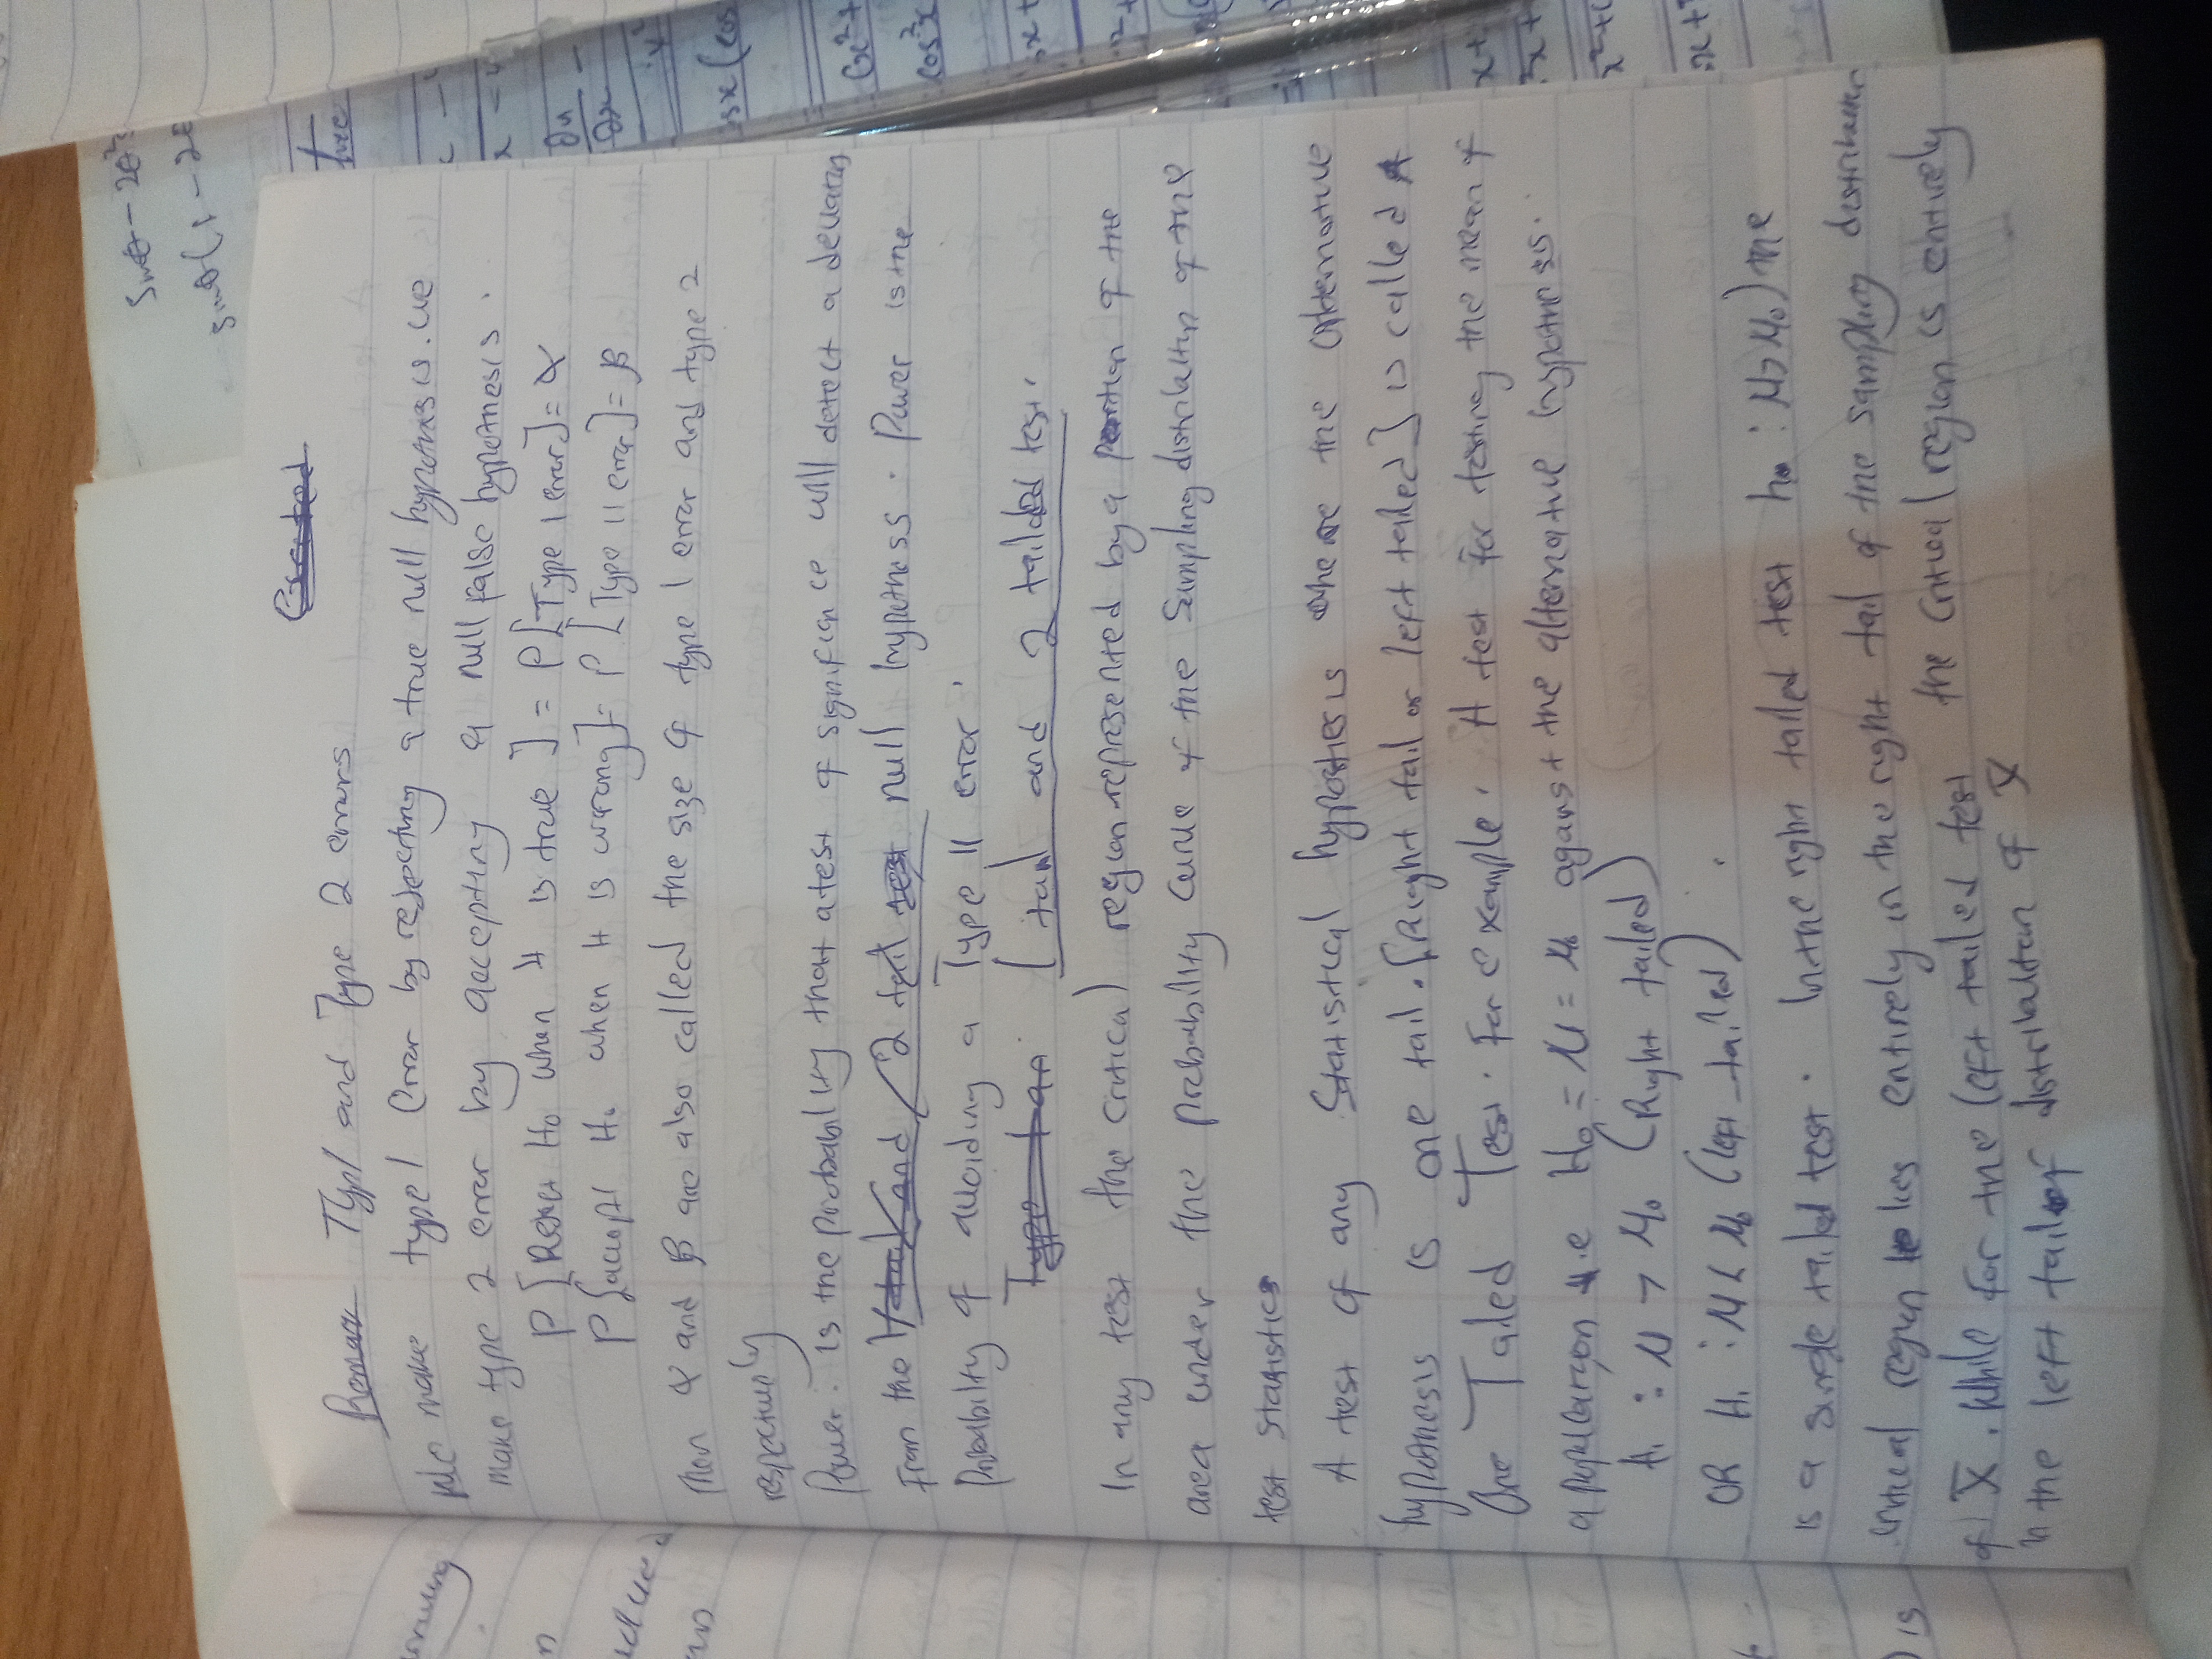 Sinθ - 2θ²
sinθ(1 - 2θ
Created
Remark Typ1 and Type 2 errors
We make type 1 error by rejecting a true null hypothesis. we
make type 2 error by accepting a null false hypothesis.
P[Reject H₀ when it is true] = P[Type 1 error] = α
P[accept H₀ when it is wrong] = P[Type II error] = β
Then α and β are also called the size of type 1 error and type 2
respectively
Power: is the probability that a test of significance will detect a deviation
From the 1 tail and 2 tail test null hypothesis. Power is the
Probability of avoiding a Type II error.
Type 1 an 1 tail and 2 tailded test.
In any test the critical region represented by a portion of the
area under the probability curve of the sampling distribution of the
test statistics
A test of any Statistical hypothesis where the alternative
hypothesis is one tail. [Right tail or left tailed] is called A
One Tailed Test. For example. A test for testing the mean of
a population i.e H₀ = μ = μ₀ against the alternative hypothesis.
H₁ : μ > μ₀ (Right tailed)
OR H₁ : μ < μ₀ (left tailed)
is a single tailed test. In the right tailed test h₀ : μ > μ₀) the
critical region lies entirely in the right tail of the sampling distribution
of X̄. While for the left tailed test the critical region is entirely
in the left tail of distribution of X̄